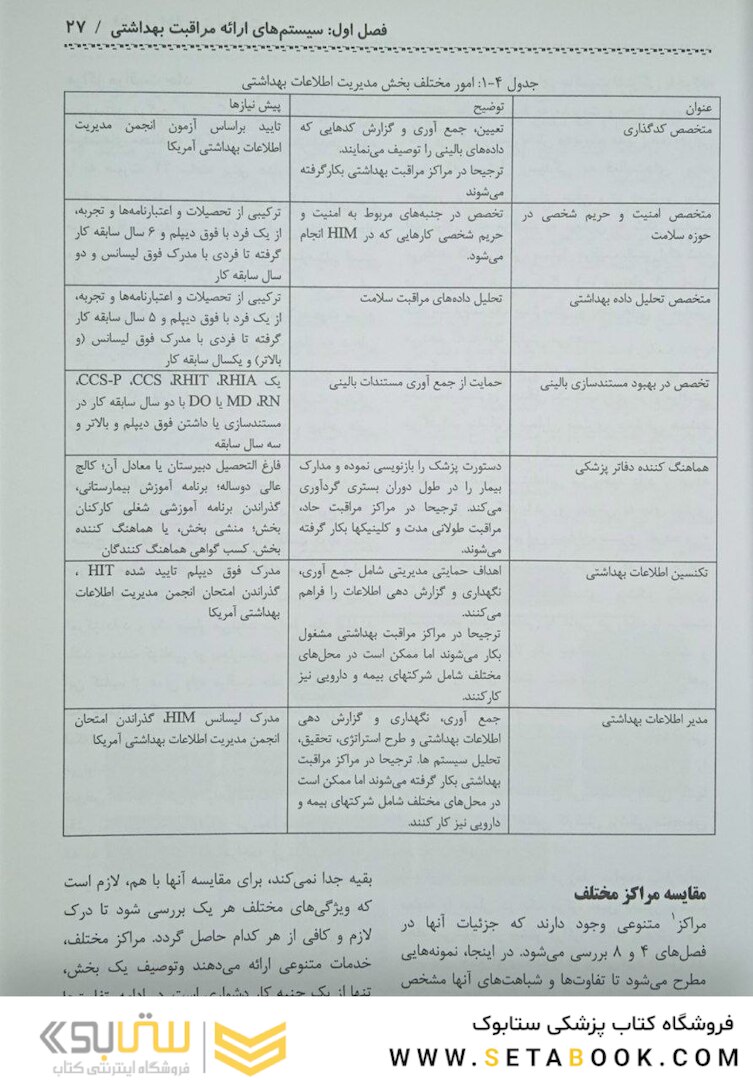 فصل اول: سیستم‌های ارائه مراقبت بهداشتی / ۲۷
جدول ۴-۱: امور مختلف بخش مدیریت اطلاعات بهداشتی
عنوان
توضیح
پیش نیازها
متخصص کدگذاری
تعیین، جمع آوری و گزارش کدهایی که
داده‌های بالینی را توصیف می‌نمایند.
ترجیحا در مراکز مراقبت بهداشتی بکارگرفته
می‌شوند
تایید براساس آزمون انجمن مدیریت
اطلاعات بهداشتی آمریکا
متخصص امنیت و حریم شخصی در
حوزه سلامت
تخصص در جنبه‌های مربوط به امنیت و
حریم شخصی کارهایی که در HIM انجام
می‌شود.
ترکیبی از تحصیلات و اعتبارنامه‌ها و تجربه،
از یک فرد با فوق دیپلم و ۶ سال سابقه کار
گرفته تا فردی با مدرک فوق لیسانس و دو
سال سابقه کار
متخصص تحلیل داده بهداشتی
تحلیل داده‌های مراقبت سلامت
ترکیبی از تحصیلات و اعتبارنامه‌ها و تجربه،
از یک فرد با فوق دیپلم و ۵ سال سابقه کار
گرفته تا فردی با مدرک فوق لیسانس (و
بالاتر) و یکسال سابقه کار
تخصص در بهبود مستندسازی بالینی
حمایت از جمع آوری مستندات بالینی
یک RHIA، RHIT، CCS، CCS-P،
RN، MD یا DO با دو سال سابقه کار در
مستندسازی یا داشتن فوق دیپلم و بالاتر و
سه سال سابقه
هماهنگ کننده دفاتر پزشکی
دستورت پزشک را بازنویسی نموده و مدارک
بیمار را در طول دوران بستری گردآوری
می‌کند. ترجیحا در مراکز مراقبت حاد،
مراقبت طولانی مدت و کلینیکها بکار گرفته
می‌شوند.
فارغ التحصیل دبیرستان یا معادل آن؛ کالج
عالی دوساله؛ برنامه آموزش بیمارستانی،
گذراندن برنامه آموزشی شغلی کارکنان
بخش؛ منشی بخش، یا هماهنگ کننده
بخش. کسب گواهی هماهنگ کنندگان
تکنسین اطلاعات بهداشتی
اهداف حمایتی مدیریتی شامل جمع آوری،
نگهداری و گزارش دهی اطلاعات را فراهم
می‌کنند.
ترجیحا در مراکز مراقبت بهداشتی مشغول
بکار می‌شوند اما ممکن است در محل‌های
مختلف شامل شرکتهای بیمه و دارویی نیز
کارکنند.
مدرک فوق دیپلم تایید شده HIT ،
گذراندن امتحان انجمن مدیریت اطلاعات
بهداشتی آمریکا
مدیر اطلاعات بهداشتی
جمع آوری، نگهداری و گزارش دهی
اطلاعات بهداشتی و طرح استراتژی، تحقیق،
تحلیل سیستم ها. ترجیحا در مراکز مراقبت
بهداشتی بکار گرفته می‌شوند اما ممکن است
در محل‌های مختلف شامل شرکتهای بیمه و
دارویی نیز کار کنند.
مدرک لیسانس HIM، گذراندن امتحان
انجمن مدیریت اطلاعات بهداشتی آمریکا
مقایسه مراکز مختلف
مراکز۱ متنوعی وجود دارند که جزئیات آنها در
فصل‌های ۴ و ۸ بررسی می‌شود. در اینجا، نمونه‌هایی
مطرح می‌شود تا تفاوت‌ها و شباهت‌های آنها مشخص
بقیه جدا نمی‌کند، برای مقایسه آنها با هم، لازم است
که ویژگی‌های مختلف هر یک بررسی شود تا درک
لازم و کافی از هر کدام حاصل گردد. مراکز مختلف،
خدمات متنوعی ارائه می‌دهند وتوصیف یک بخش،
تنها از یک جنبه کار دشواری است. در ادامه تفاوت‌ها
فروشگاه کتاب پزشکی ستابوک
WWW.SETABOOK.COM
ستابوک
فروشگاه اینترنتی کتاب